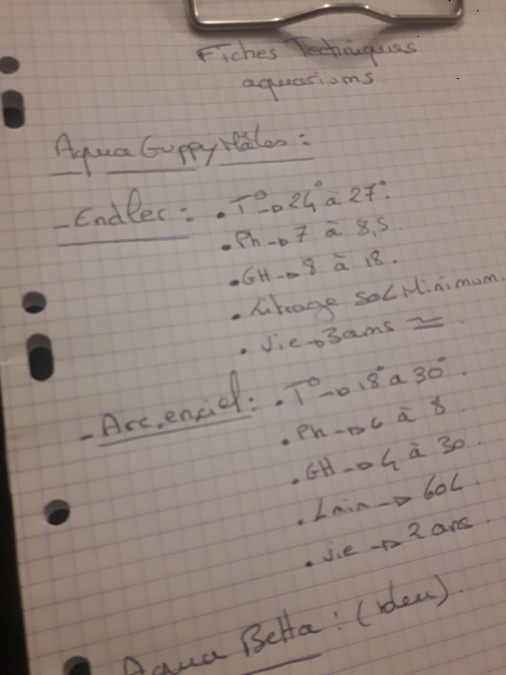 Fiches Techniques
aquariums
Aqua Guppy Mâles :
- Endler : • T° → 24° à 27°.
• Ph → 7 à 8,5
• GH → 8 à 18.
• Litrage 50L Minimum.
• Vie → 3ans ≃.
- Arc.enciel : • T° → 18° a 30°.
• Ph → 6 à 8.
• GH → 4 à 30.
• Lmin → 60L.
• Vie → 2 ans.
Aqua Betta : (bleu).